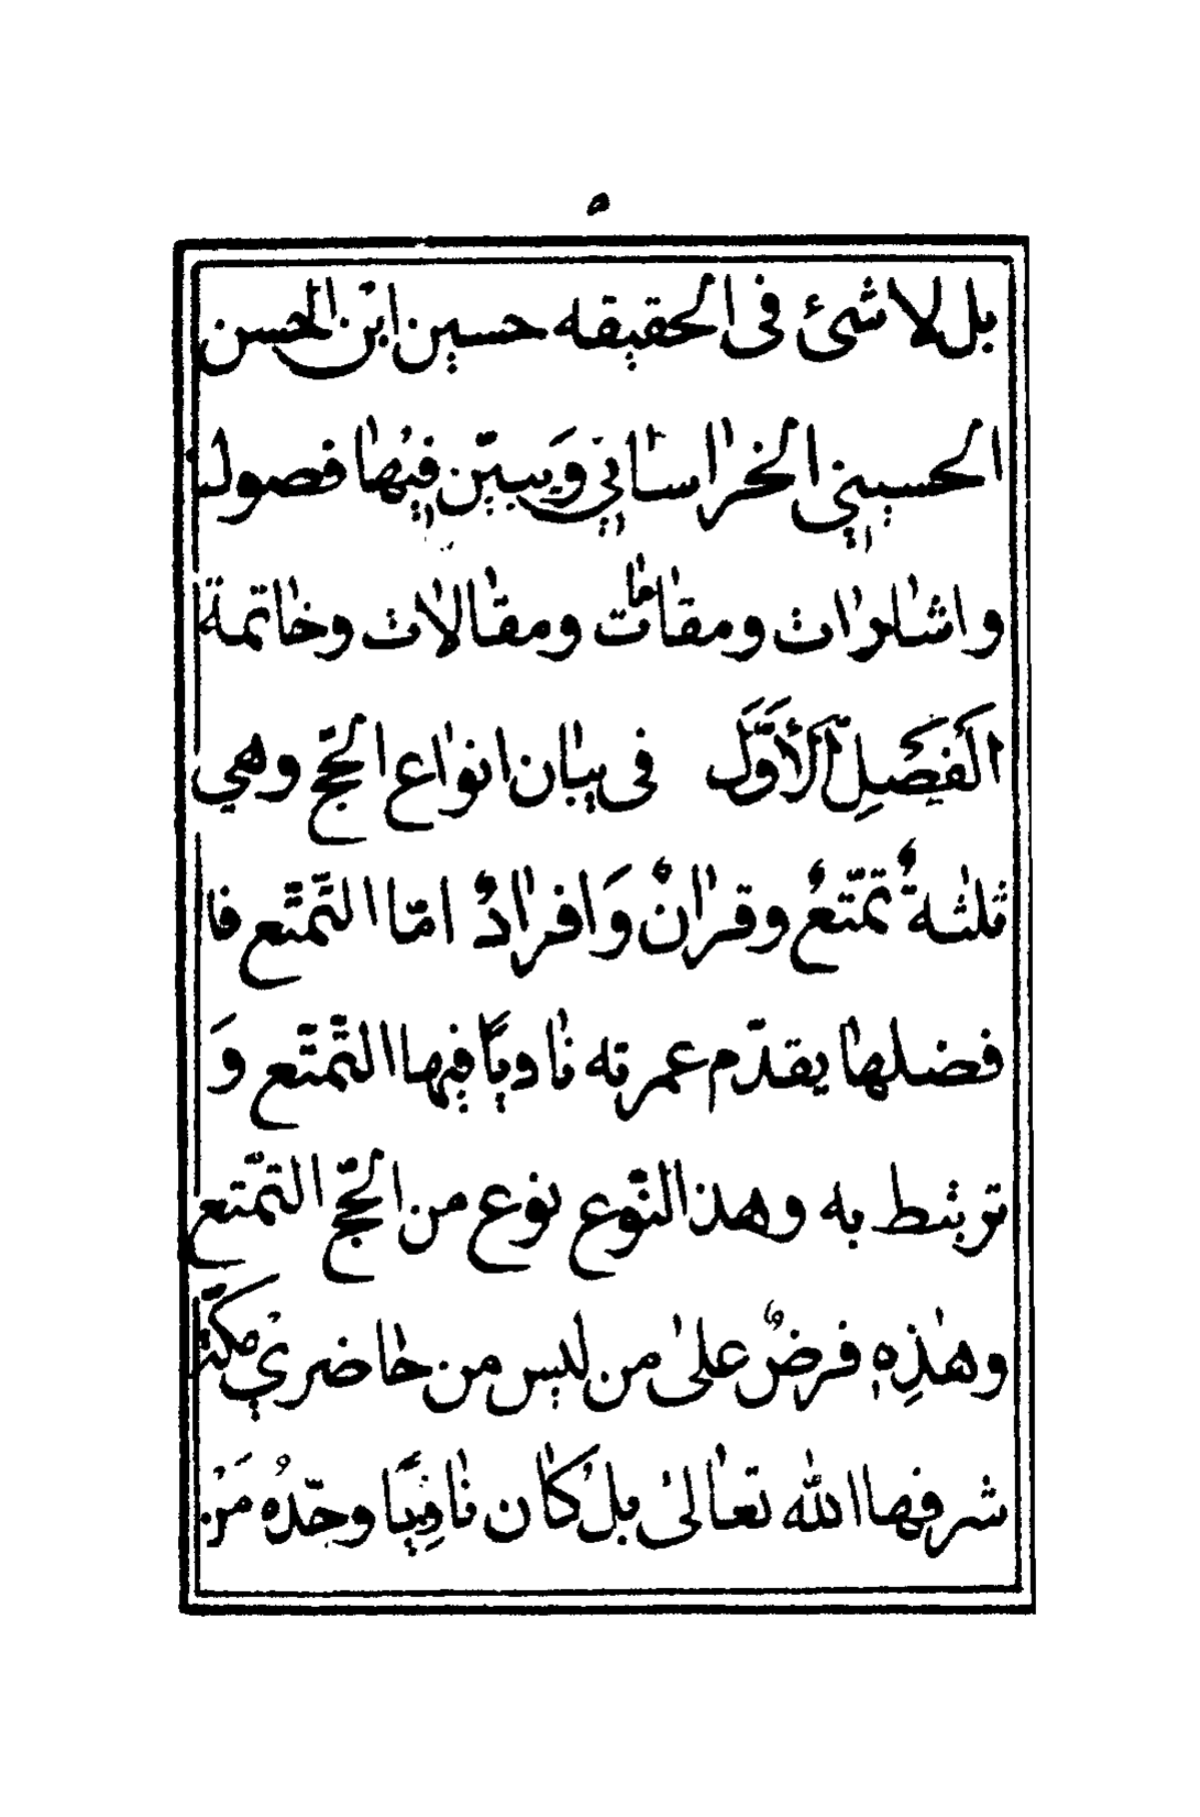 ٥
بل لا شئ فى الحقيقه حسين ابن الحسن
الحسيني الخراساني وَيبيّن فيها فصول
واشارات ومقامات ومقالات وخاتمة
الفَصَلِ الأوَّل فى بيان انواع الحجّ وهي
ثلثةٌ تمتّعٌ وقرانٌ وَافرادٌ امّا التّمتّع فا
فضلها يقدّم عمرته ناويًا فيها التّمتّع وَ
تربتط به وهذا النّوع نوع من الحجّ التمّتع
وهٰذِهٖ فرضٌ علىٰ من ليس من حاضريْ مكّة
شرفها الله تعالىٰ بلْ كان نافِيًا وحّدهُ مَنْ